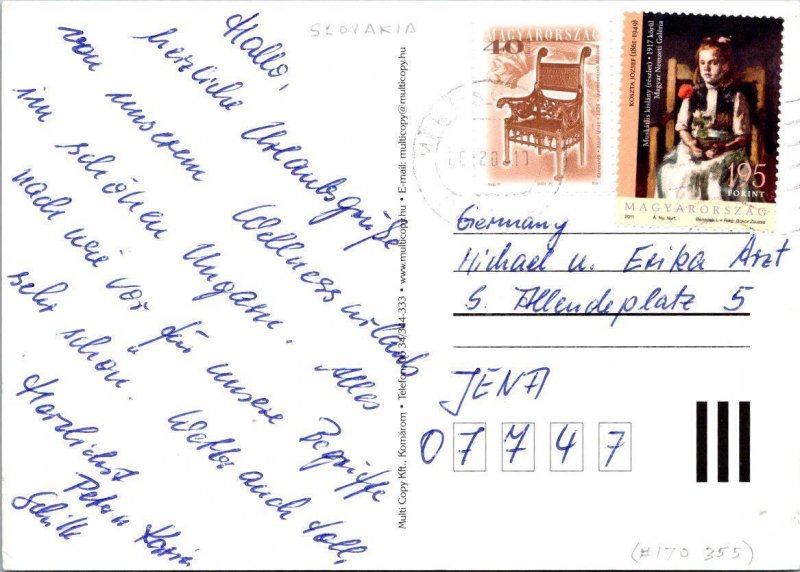 SLOVAKIA
Hallo,
herzliche Urlaubsgrüße
von unserem Wellnessurlaub
im schönen Ungarn. Alles
nach wie vor für unsere Begriffe
sehr schön. Wetter auch toll,
Herzlichst
Peter u. Karin
Multi Copy Kft., Komárom • Telefon: 34/344-333 • www.multicopy.hu • E-mail: multicopy@multicopy.hu
MAGYARORSZÁG
40
KOSZTA JÓZSEF (1861-1949)
Muskátlis kislány (részlet) • 1917 körül
Magyar Nemzeti Galéria
195
FORINT
MAGYARORSZÁG
2011
Germany
Michael u. Erika Arzt
S. Allendeplatz 5
JENA
07747
(#170 355)